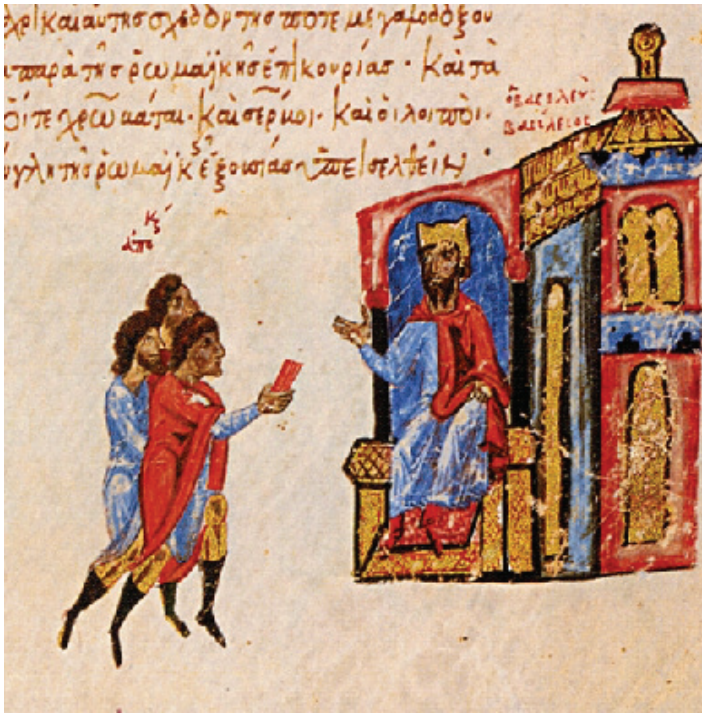 χρι καὶ αὐτῆσ σχεδὸν τῆσ ποτε μεγαλοδόξου
παρὰ τῆσ ῥωμαϊκῆσ ἐπικουρίασ· καὶ τὰ
οἵ τε χρωβάται· καὶ σέρβιοι· καὶ οἱ λοιποὶ·
τῆσ ῥωμαϊκ ἐξουσίασ ὑπεισελθεῖν
ὁ βασιλεὺς
βασίλειος